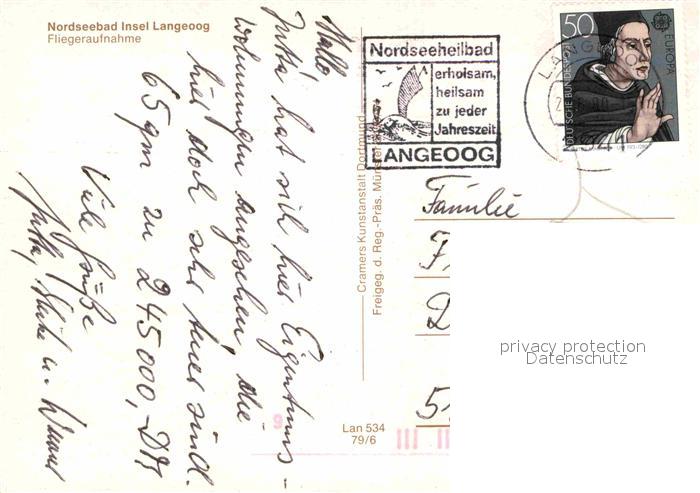 Nordseebad Insel Langeoog
Fliegeraufnahme
Hallo
Jutta hat sich hier Eigentums-
wohnungen angesehen, die
hier doch sehr teuer sind.
65 qm zu 245000,- DM
Viele Grüße
Jutta, u.
Cramers Kunstanstalt Dortmund
Freigeg. d. Reg.-Präs. Münster
Lan 534
79/6
Nordseeheilbad
erholsam,
heilsam
zu jeder
Jahreszeit
LANGEOOG
50
EUROPA
DEUTSCHE BUNDESPOST
Familie
privacy protection
Datenschutz